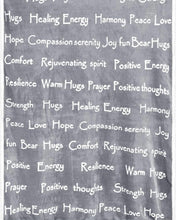 Hugs Healing Energy Harmony Peace Love
Hope Compassion serenity Joy fun Bear Hugs
Comfort Rejuvenating spirit Positive Energy
Resilience Warm Hugs Prayer Positive thoughts
Strength Hugs Healing Energy Harmony
Peace Love Hope Compassion serenity Joy
fun Bear Hugs Comfort Rejuvenating spirit
Positive Energy Resilience Warm Hugs
Prayer Positive thoughts Strength Hugs
Healing Energy Harmony Peace Love Hope